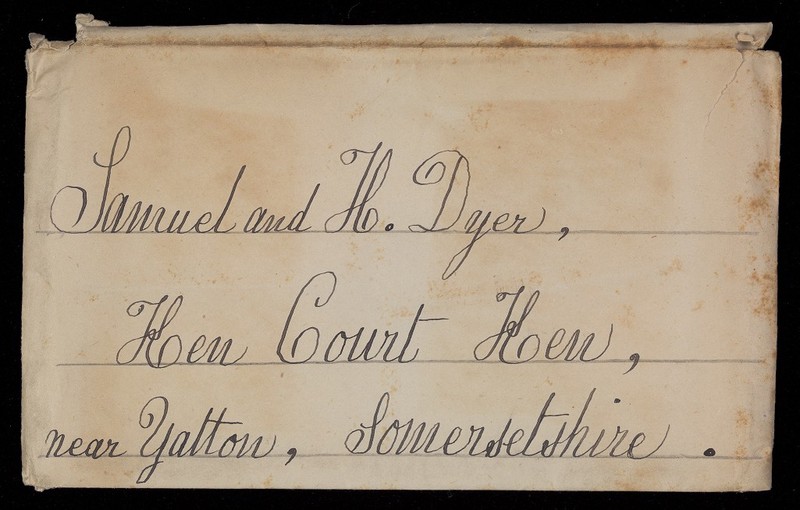 Samuel and H. Dyer,
Ken Court Ken,
near Yatton, Somersetshire .